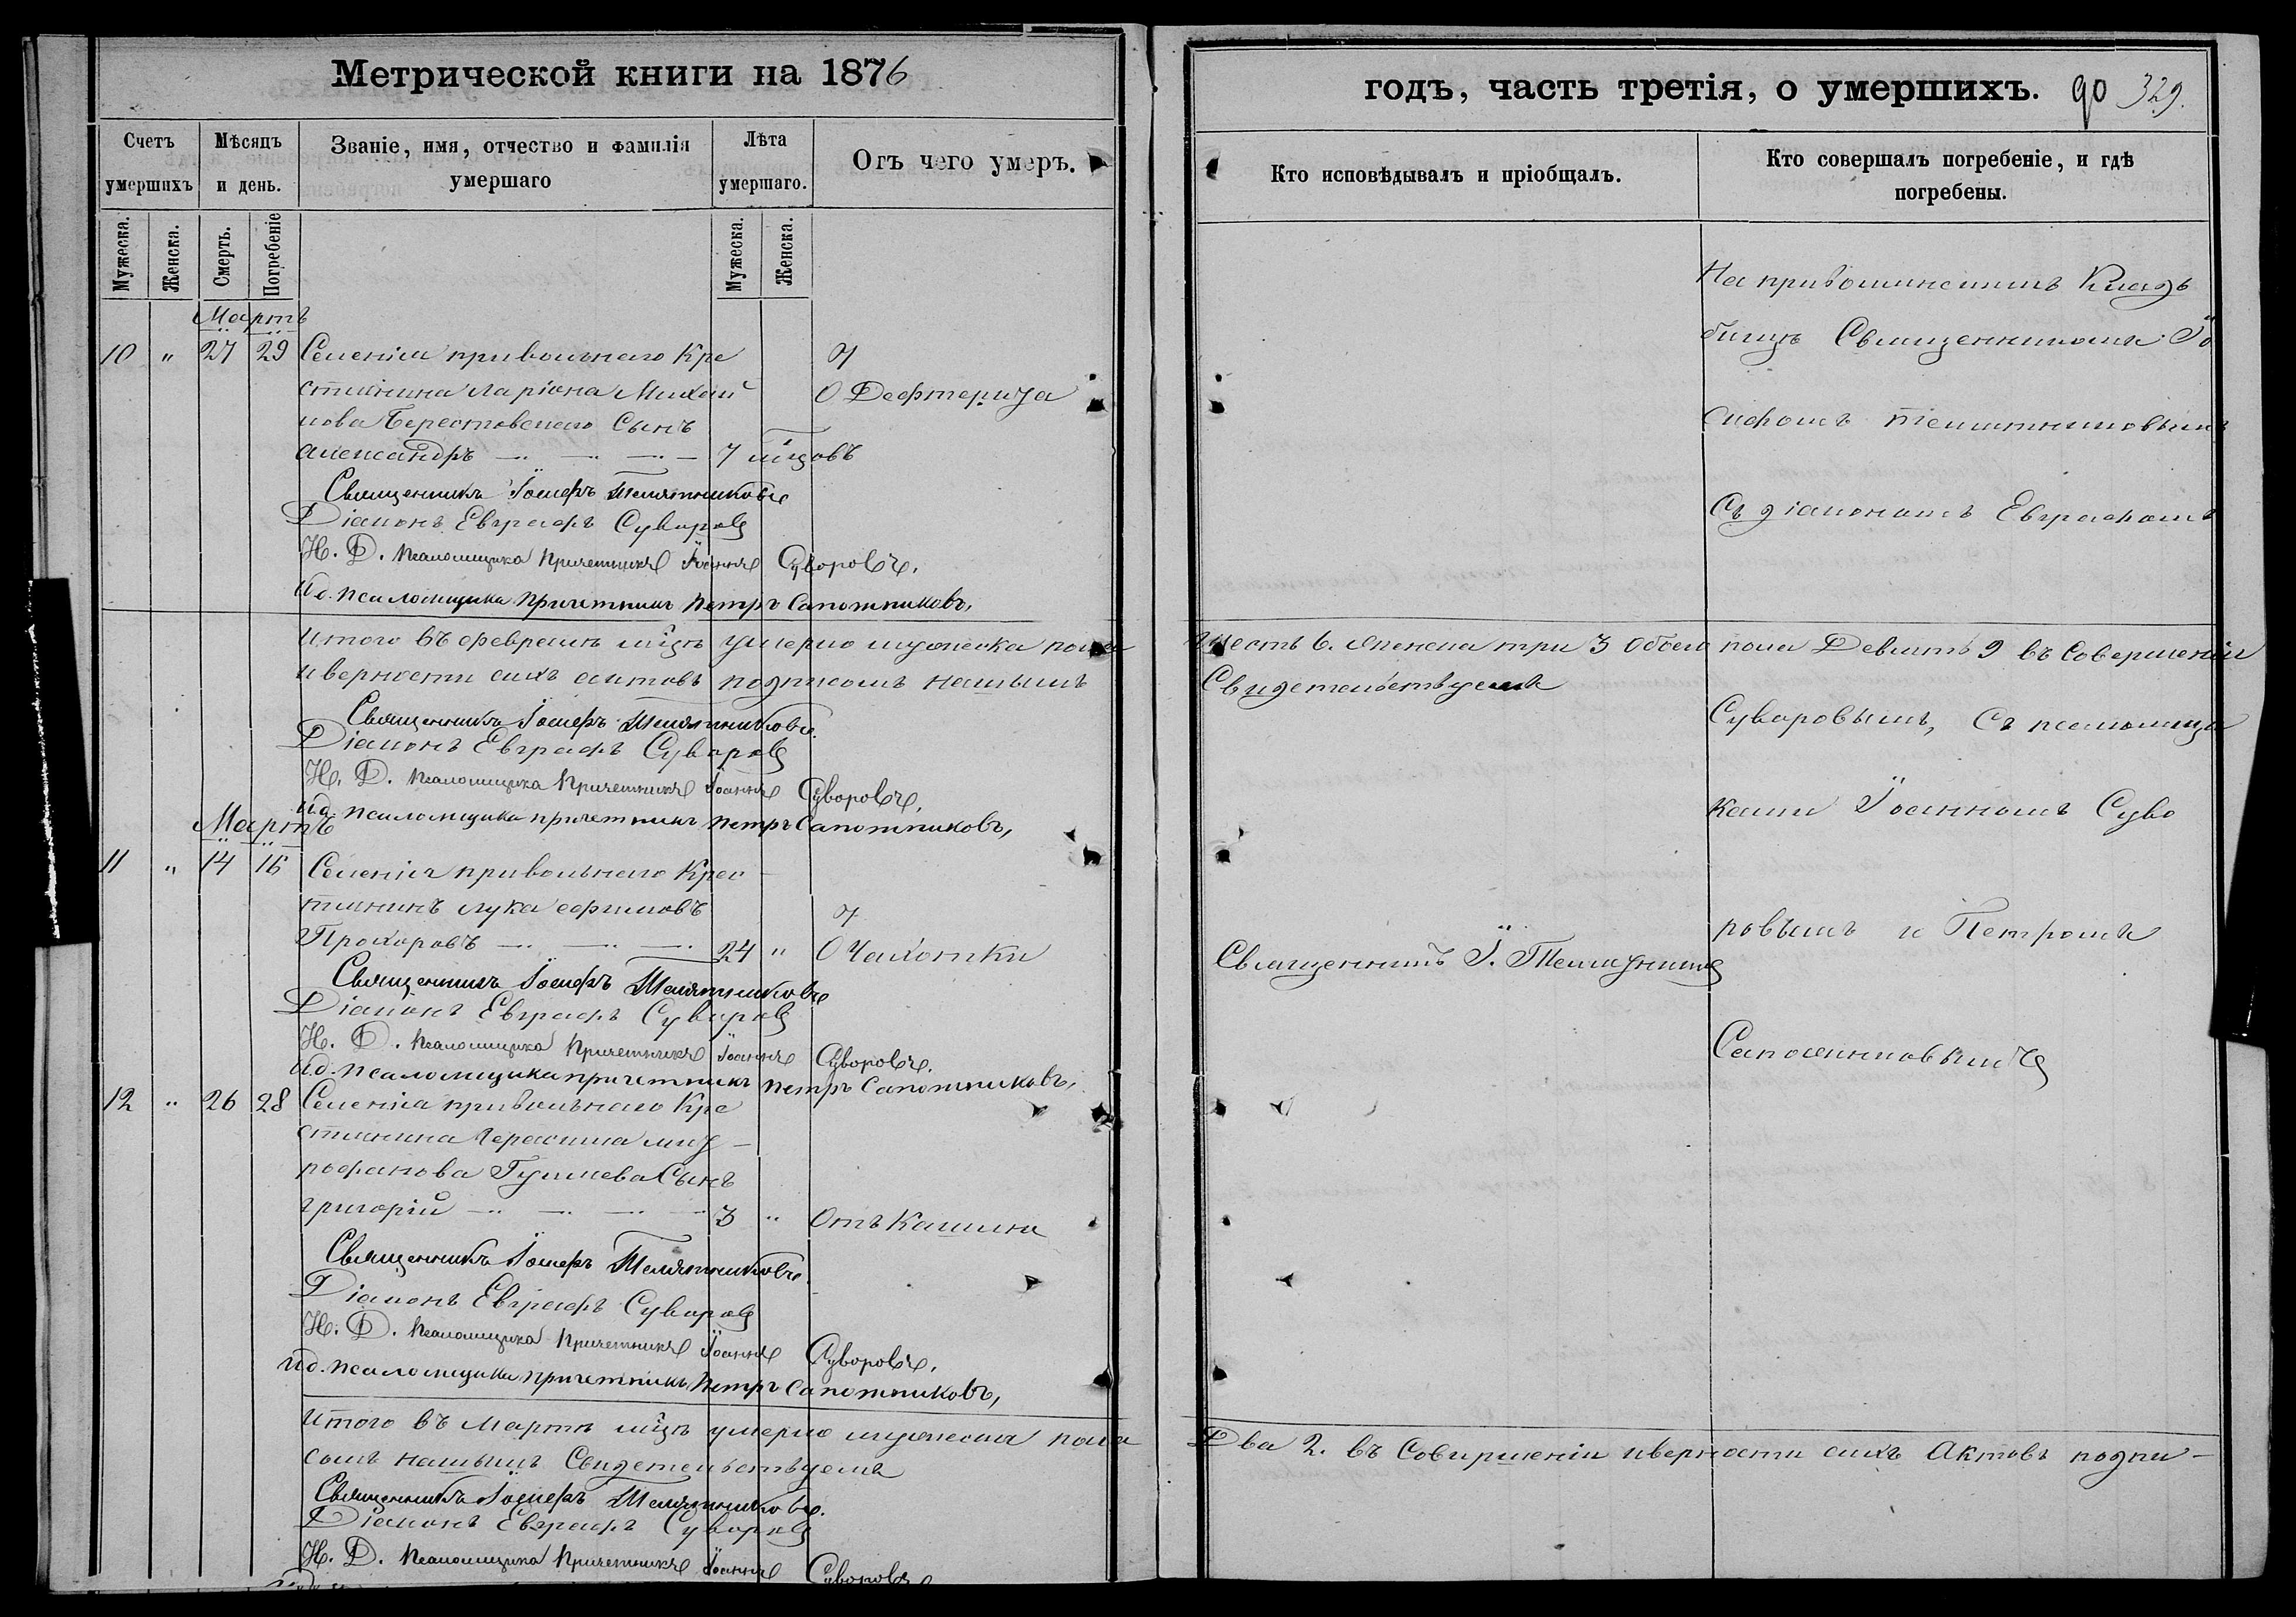 Метрической книги на 1876
Счетъ умершихъ
Мѣсяцъ и день.
Званіе, имя, отчество и фамилія умершаго
Лѣта умершаго.
Отъ чего умеръ.
Мужеска.
Женска.
Смерть.
Погребеніе
Мужеска.
Женска.
Мартъ
10 " 27 29 Селенія привольнаго Кре
стянина Ларіона Михай О Дефтерита
лова Берестовскаго Сынъ
александръ 7 мцовъ
Священникъ Іосифъ Телятниковъ
Діаконъ Евграфъ Суворовъ
И. Д. псаломщика причетникъ Іоаннъ Суворовъ.
Ид. псаломщика причетникъ петръ Сапожниковъ,
Итого въ февралѣ мцѣ умерло мужеска пола
и верности сихъ актовъ подписомъ нашымъ
Священникъ Іосифъ Телятниковъ.
Діаконъ Евграфъ Суворовъ
И. Д. псаломщика причетникъ Іоаннъ Суворовъ.
ид псаломщика причетникъ петръ Сапожниковъ,
Мартъ
11 " 14 16 Селенія привольнаго Крес
тянинъ лука ефимовъ
Прохоровъ 24 " О Чахотки
Священникъ Іосифъ Телятниковъ
Діаконъ Евграфъ Суворовъ
И. Д. псаломщика причетникъ Іоаннъ Суворовъ.
ид. псаломщика причетникъ петръ Сапожниковъ,
12 " 26 28 Селенія привольнаго Кре
стянина Герасима мит
рофанова Сынъ
григорій 3 " Отъ Кашля
Священникъ Іосифъ Телятниковъ.
Діаконъ Евграфъ Суворовъ
И. Д. псаломщика причетникъ Іоаннъ Суворовъ.
ид. псаломщика причетникъ петръ Сапожниковъ,
Итого въ Мартѣ мцѣ умерло мужеска пола
сомъ нашымъ Свидетельствуемъ
Священникъ Іосифъ Телятниковъ.
Діаконъ Евграфъ Суворовъ
И. Д. псаломщика причетникъ Іоаннъ Суворовъ
годъ, часть третія, о умершихъ. 90 329.
Кто исповѣдывалъ и пріобщалъ.
Кто совершалъ погребеніе, и гдѣ погребены.
На привольнскимъ Клад
бищѣ Священникомъ Іо
сифомъ Телятниковымъ
Съ діакономъ Евграфомъ
Шесть 6. Женска три 3 Обоего пола Девять 9 въ Совершеніи
Свидетельствуемъ
Суворовымъ, Съ псаломщи
ками Іоанномъ Суво
ровымъ и Петромъ
Священникъ І.
Сапожниковымъ
Два 2. въ Совиршеніи иверности сихъ Актовъ подпи-